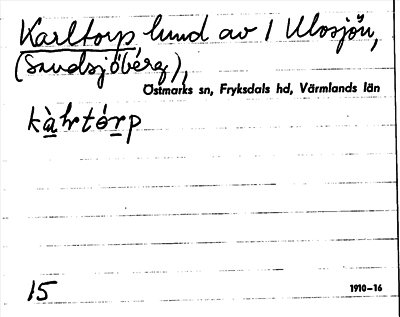 Karltorp lund av 1 Ulvsjön,
(Sandsjöberg),
Östmarks sn, Fryksdals hd, Värmlands län
kàrtórp
15
1910–16